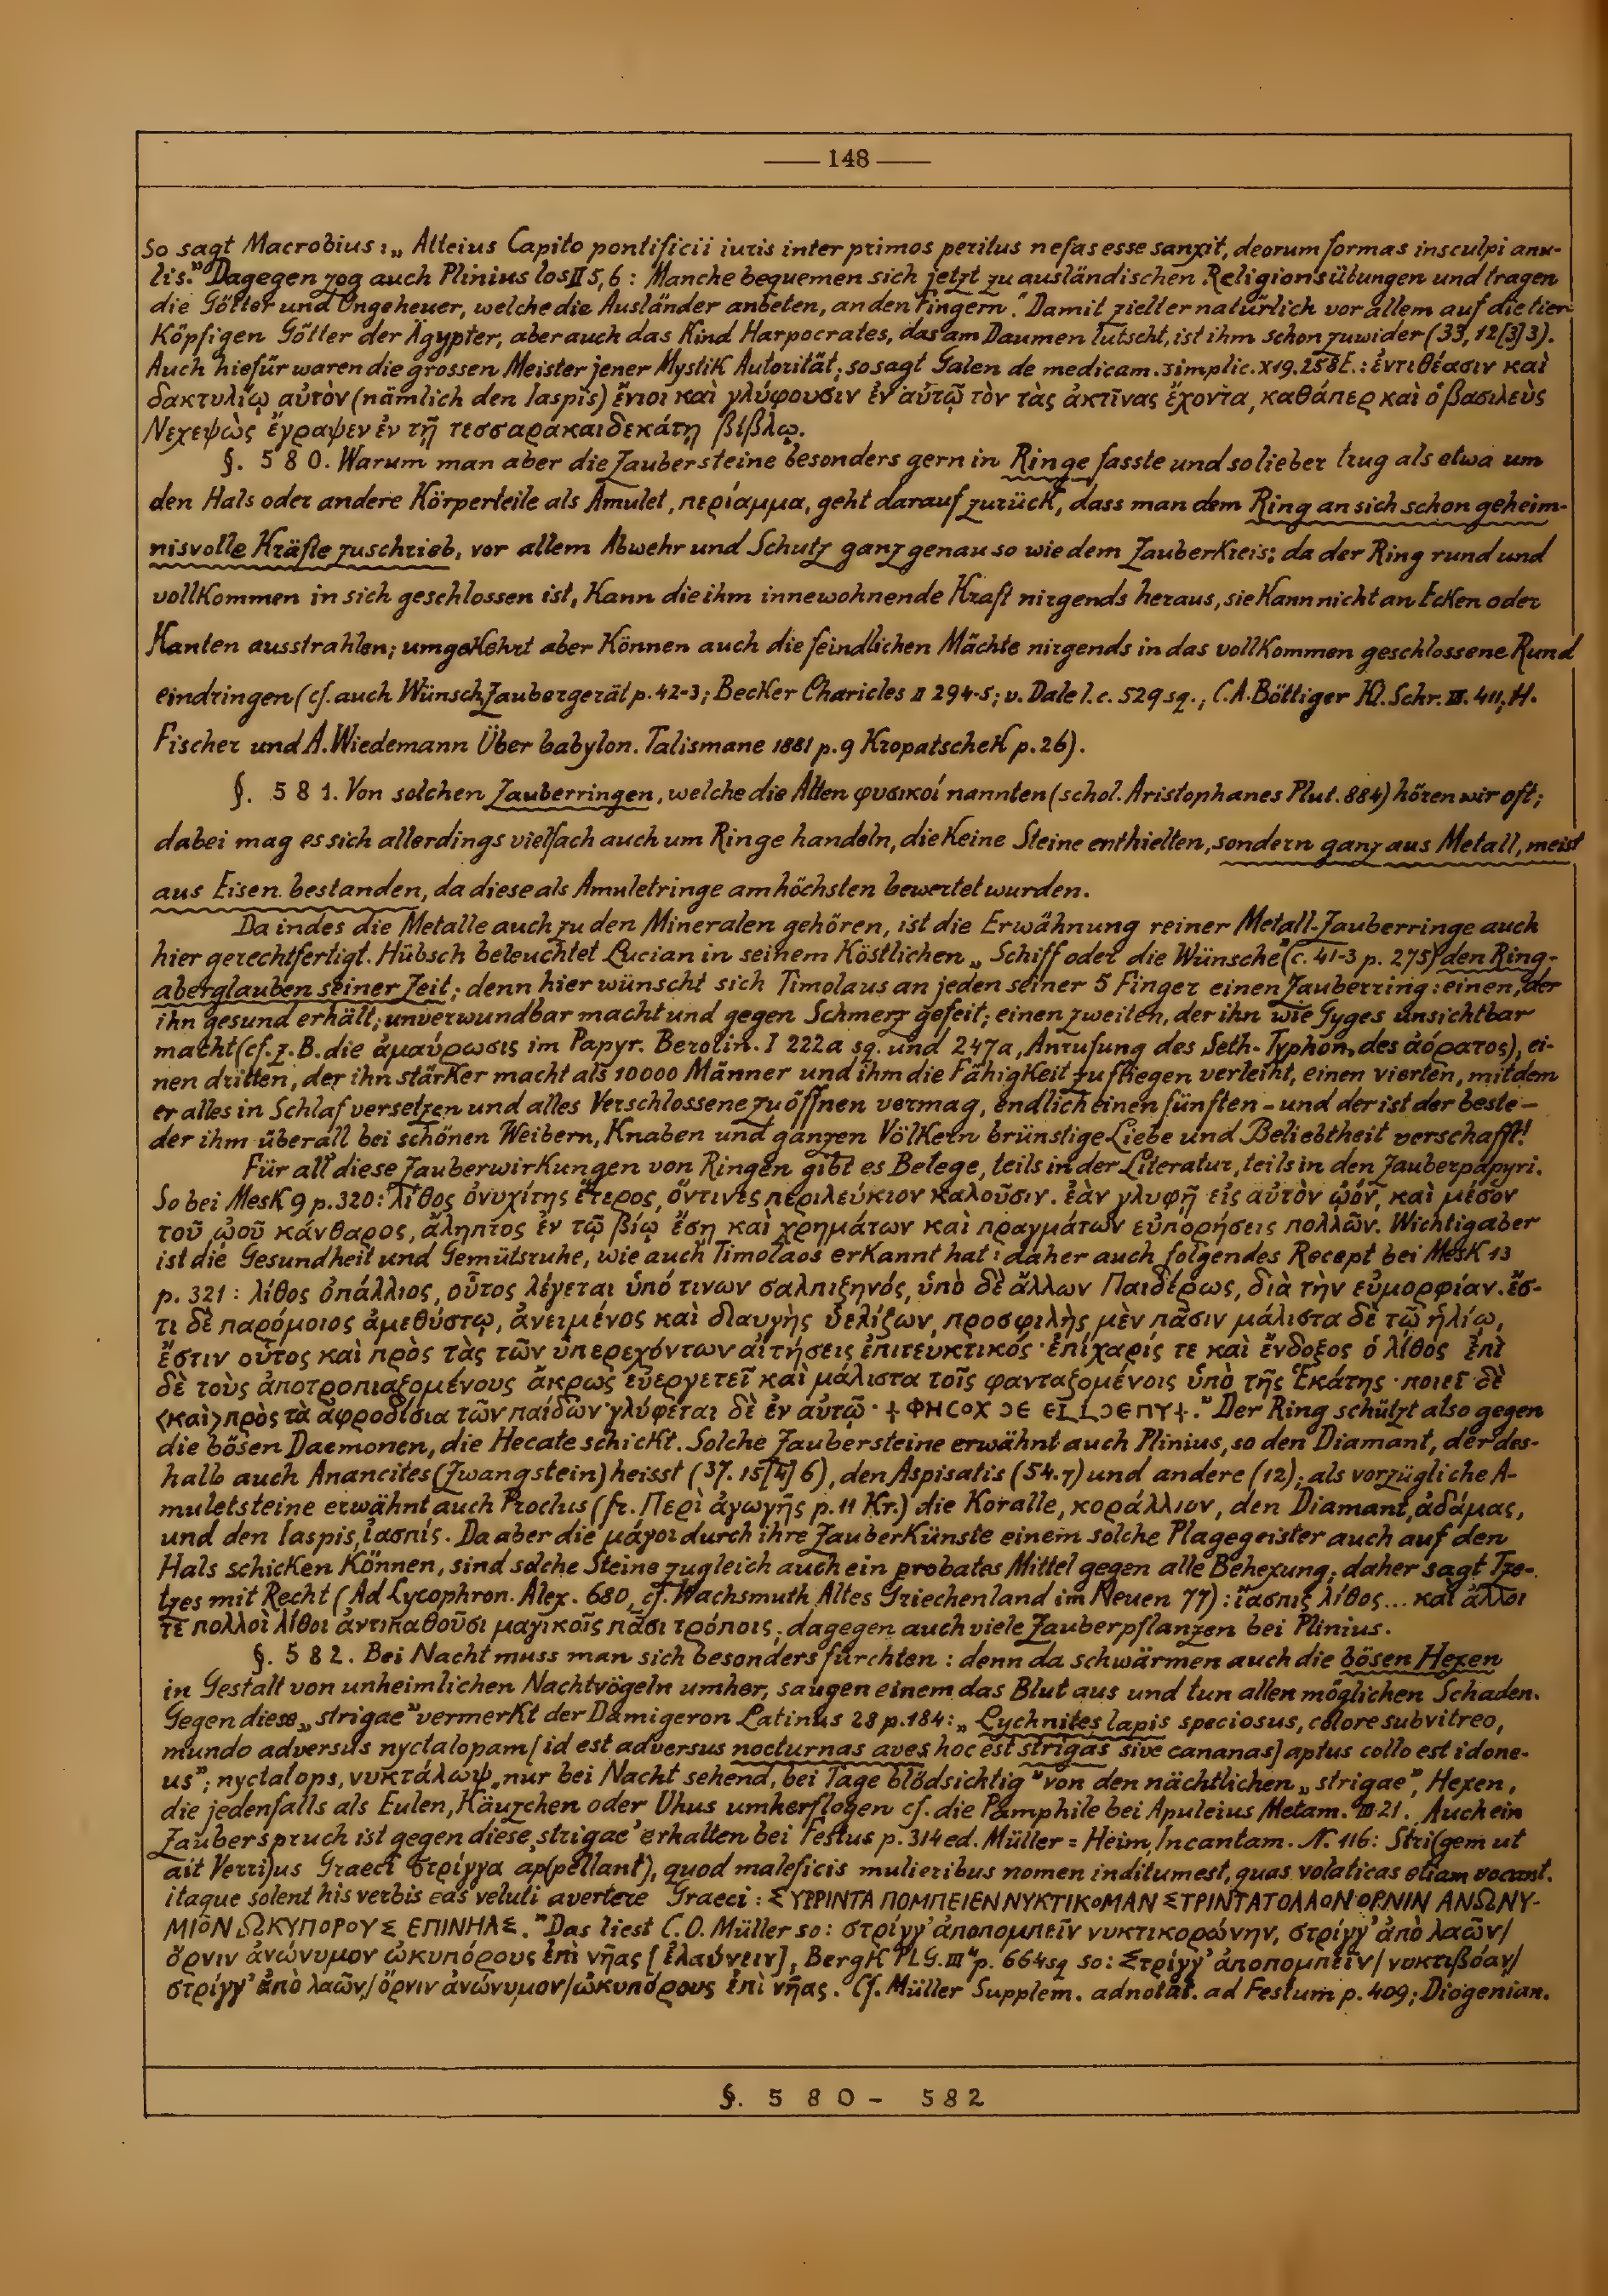 — 148 —
So sagt Macrobius: „Atteius Capito pontificii iuris inter primos peritus nefas esse sanxit, deorum formas insculpi anu-
lis." Dagegen zog auch Plinius los II 5,6: Manche bequemen sich jetzt zu ausländischen Religionsübungen und tragen
die Götter und Ungeheuer, welche die Ausländer anbeten, an den Fingern." Damit zielt er natürlich vor allem auf die tier-
köpfigen Götter der Ägypter, aber auch das Kind Harpocrates, das am Daumen lutscht, ist ihm schon zuwider (33, 12[3]3).
Auch hiefür waren die grossen Meister jener Mystik Autorität; so sagt Galen de medicam. simplic. X 19. 258 : ἐντιθέασιν καὶ
δακτυλίῳ αὐτὸν (nämlich den Iaspis) ἔνιοι καὶ γλύφουσιν ἐν αὐτῷ τὸν τὰς ἀκτῖνας ἔχοντα, καθάπερ καὶ ὁ βασιλεὺς
Νεχεψὼς ἔγραψεν ἐν τῇ τεσσαρακαιδεκάτῃ βίβλῳ.
§. 580. Warum man aber die Zaubersteine besonders gern in Ringe fasste und so lieber trug als etwa um
den Hals oder andere Körperteile als Amulet, περίαμμα, geht darauf zurück, dass man dem Ring an sich schon geheim-
nisvolle Kräfte zuschrieb, vor allem Abwehr und Schutz ganz genau so wie dem Zauberkreis: da der Ring rund und
vollkommen in sich geschlossen ist, kann die ihm innewohnende Kraft nirgends heraus, sie kann nicht an Ecken oder
Kanten ausstrahlen; umgekehrt aber können auch die feindlichen Mächte nirgends in das vollkommen geschlossene Rund
eindringen (cf. auch Wünsch Zaubergerät p. 42-3; Becker Charicles II 294-5; v. Dale l. c. 529 sq.; C. A. Böttiger Kl. Schr. III. 411, H.
Fischer und A. Wiedemann Über babylon. Talismane 1881 p. 9 Kropatschek p. 26).
§. 581. Von solchen Zauberringen, welche die Alten φυσικοί nannten (schol. Aristophanes Plut. 884) hören wir oft;
dabei mag es sich allerdings vielfach auch um Ringe handeln, die keine Steine enthielten, sondern ganz aus Metall, meist
aus Eisen bestanden, da diese als Amuletringe am höchsten bewertet wurden.
Da indes die Metalle auch zu den Mineralen gehören, ist die Erwähnung reiner Metall-Zauberringe auch
hier gerechtfertigt. Hübsch beleuchtet Lucian in seinem köstlichen „Schiff oder die Wünsche" (c. 41-3 p. 275) den Ring-
aberglauben seiner Zeit; denn hier wünscht sich Timolaus an jeden seiner 5 Finger einen Zauberring: einen, der
ihn gesund erhält, unverwundbar macht und gegen Schmerz gefeit; einen zweiten, der ihn wie Gyges unsichtbar
macht (cf. z. B. die ἀμαύρωσις im Papyr. Berolin. I 222a sq. und 247a, Anrufung des Seth-Typhon, des ἀόρατος), ei-
nen dritten, der ihn stärker macht als 10000 Männer und ihm die Fähigkeit zu fliegen verleiht, einen vierten, mit dem
er alles in Schlaf versetzen und alles Verschlossene zu öffnen vermag, endlich einen fünften – und der ist der beste –
der ihm überall bei schönen Weibern, Knaben und ganzen Völkern brünstige Liebe und Beliebtheit verschafft!
Für all diese Zauberwirkungen von Ringen gibt es Belege, teils in der Literatur, teils in den Zauberpapyri.
So bei Mesk 9 p. 320: λίθος ὀνυχίτης ἕτερος, ὅντινες περιλεύκιον καλοῦσιν. ἐὰν γλυφῇ εἰς αὐτὸν ᾠόν, καὶ μέσον
τοῦ ᾠοῦ κάνθαρος, ἄληπτος ἐν τῷ βίῳ ἔσῃ καὶ χρημάτων καὶ πραγμάτων εὐπορήσεις πολλῶν. Wichtig aber
ist die Gesundheit und Gemütsruhe, wie auch Timolaos erkannt hat: daher auch folgendes Recept bei Mesk 13
p. 321: λίθος ὀπάλλιος, οὗτος λέγεται ὑπό τινων σαλπιξηνός, ὑπὸ δὲ ἄλλων Παιδέρως, διὰ τὴν εὐμορφίαν. ἔσ-
τι δὲ παρόμοιος ἀμεθύστῳ, ἀνειμένος καὶ διαυγὴς ὑελίζων, προσφιλὴς μὲν πᾶσιν μάλιστα δὲ τῷ ἡλίῳ,
ἔστιν οὗτος καὶ πρὸς τὰς τῶν ὑπερεχόντων αἰτήσεις ἐπιτευκτικός· ἐπίχαρίς τε καὶ ἔνδοξος ὁ λίθος ἐπὶ
δὲ τοὺς ἀποτροπιαζομένους ἄκρως εὐεργετεῖ καὶ μάλιστα τοῖς φανταζομένοις ὑπὸ τῆς Ἑκάτης· ποιεῖ δὲ
<καὶ> πρὸς τὰ ἀφροδίσια τῶν παίδων· γλύφεται δὲ ἐν αὐτῷ· " Der Ring schützt also gegen
die bösen Daemonen, die Hecate schickt. Solche Zaubersteine erwähnt auch Plinius, so den Diamant, der des-
halb auch Anancites (Zwangstein) heisst (37. 15[4]6), den Aspisatis (54.7) und andere (12); als vorzügliche A-
muletsteine erwähnt auch Proclus (fr. Περὶ ἀγωγῆς p. 11 Kr.) die Koralle, κοράλλιον, den Diamant, ἀδάμας,
und den Iaspis, ἴασπίς. Da aber die μάγοι durch ihre Zauberkünste einem solche Plagegeister auch auf den
Hals schicken können, sind solche Steine zugleich auch ein probates Mittel gegen alle Behexung; daher sagt Tze-
tzes mit Recht (Ad Lycophron. Alex. 680, cf. Wachsmuth Altes Griechenland im Neuen 77): ἴασπις λίθος... καὶ ἄλλοι
τε πολλοὶ λίθοι ἀντιπαθοῦσι μαγικοῖς πᾶσι τρόποις; dagegen auch viele Zauberpflanzen bei Plinius.
§. 582. Bei Nacht muss man sich besonders fürchten: denn da schwärmen auch die bösen Hexen
in Gestalt von unheimlichen Nachtvögeln umher, saugen einem das Blut aus und tun allen möglichen Schaden.
Gegen diese „strigae" vermerkt der Damigeron Latinus 28 p. 184: „Lychnites lapis speciosus, colore subvitreo,
mundo adversus nyctalopam [id est adversus nocturnas aves hoc est strigas sive cananas] aptus collo est idone-
us"; nyctalops, νυκτάλωψ „nur bei Nacht sehend, bei Tage blödsichtig" von den nächtlichen „strigae", Hexen,
die jedenfalls als Eulen, Käuzchen oder Uhus umherflogen cf. die Pamphile bei Apuleius Metam. III 21. Auch ein
Zauberspruch ist gegen diese ‚strigae' erhalten bei Festus p. 314 ed. Müller = Heim, Incantam. N. 116: Stri(gem ut
ait Verri)us Graeci στρίγγα ap(pellant), quod maleficis mulieribus nomen inditumest, quas volaticas etiam vocant.
itaque solent his verbis eas veluti avertere Graeci: ΣΥΡΡΙΝΤΑ ΠΟΜΠΕΙΕΝ ΝΥΚΤΙΚΟΜΑΝ ΣΤΡΙΝΤΑΤΟΛΑΟΝ ΟΡΝΙΝ ΑΝΩΝΥ-
ΜΙΟΝ ΩΚΥΠΟΡΟΥΣ ΕΠΙΝΗΑΣ." Das liest C. O. Müller so: στρίγγ' ἀποπομπεῖν νυκτικορώνην, στρίγγ' ἀπὸ λαῶν/
ὄρνιν ἀνώνυμον ὠκυπόρους ἐπὶ νῆας [ἐλαύνειν], Bergk PLG. III⁴ p. 664sq so: Στρίγγ' ἀποπομπεῖν/ νυκτιβόαν/
στρίγγ' ἀπὸ λαῶν,/ ὄρνιν ἀνώνυμον/ ὠκυπόρους ἐπὶ νῆας. Cf. Müller Supplem. adnotat. ad Festum p. 409; Diogenian.
§. 580- 582